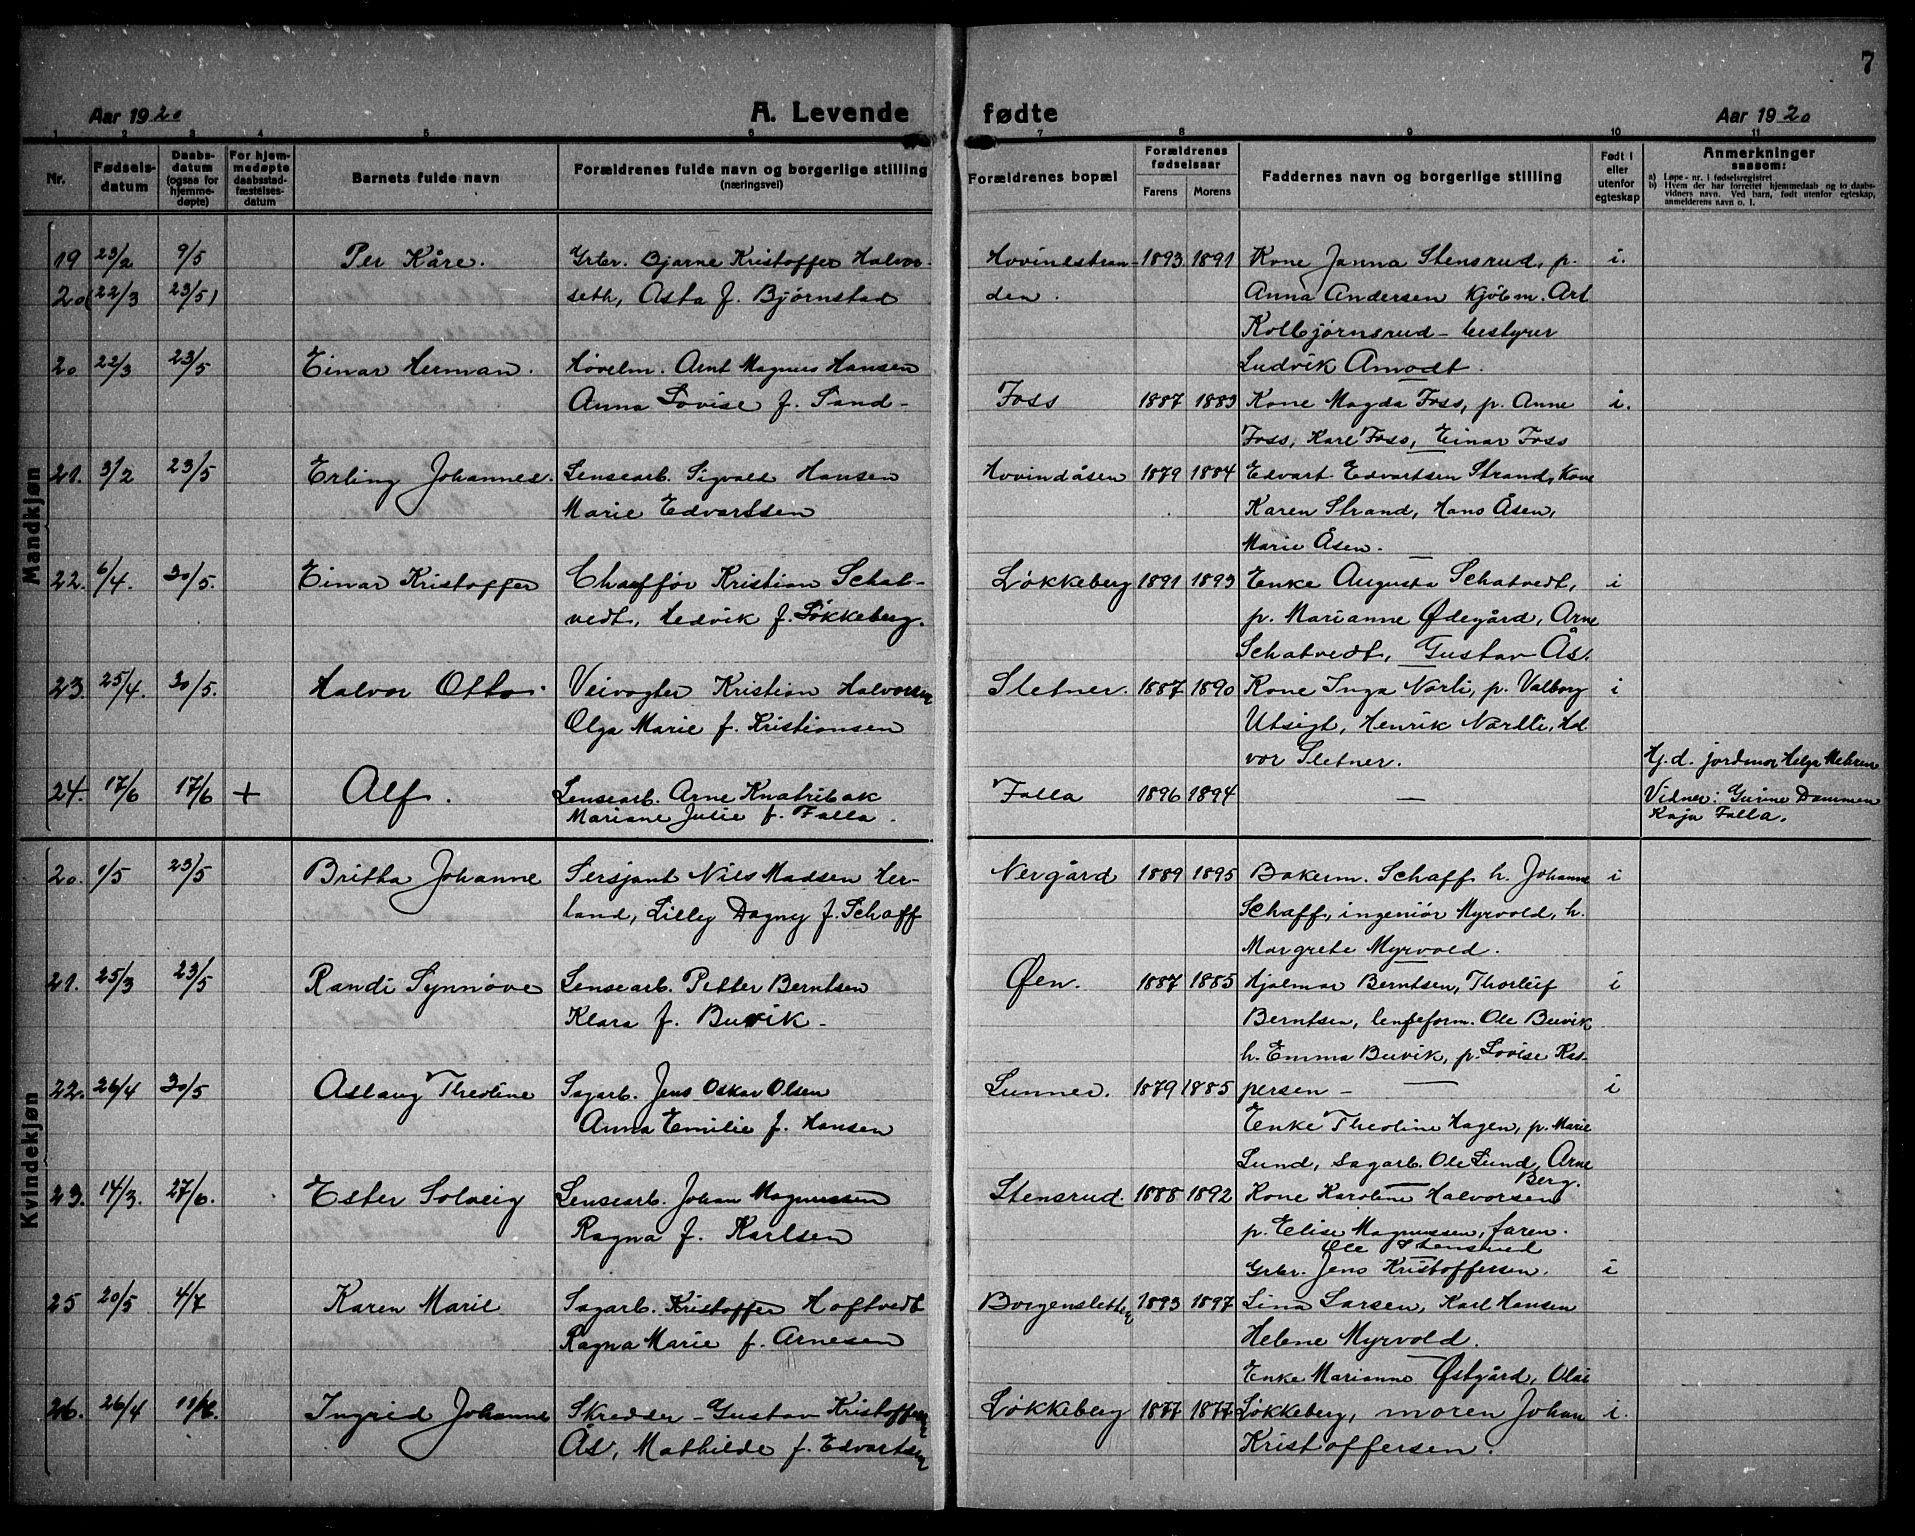 7
Aar 1920 A. Levende fødte Aar 1920
1 2 3 4 5 6 7 8 9 10 11
Nr. Fødsels-datum Daabs-datum (ogsaa for hjemme-døpte) For hjem-medøpte daabsstad-fæstelses-datum Barnets fulde navn Forældrenes fulde navn og borgerlige stilling (næringsvei) Forældrenes bopæl Forældrenes fødselsaar Farens Morens Faddernes navn og borgerlige stilling Født i eller utenfor egteskap Anmerkninger saasom:
a) Løpe-nr. i fødselsregistret
b) Hvem der har forrettet hjemmedaab og to daabs-
vidners navn. Ved barn, født utenfor egteskap,
anmelderens navn o. l.
Mandkjøn
19 23/2 9/5 Per Kåre. Grbr. Bjarne Kristoffer Halvor- Hovinlstran 1893 1891 Kone Janna Stensrud, p. i.
20 (22/3 23/5) seth, Asta f. Bjørnstad den. Anna Andersen Kjøbm. Art
Kolbjørnsrud – bestyrer
20 22/3 23/5 Einar Herman. Høvelm. Arnt Magnus Hansen Ludvik Amodt.
Anna Lovise f. Sand- Foss 1887 1883 Kone Magda Foss, p. Anne i.
Foss, Karl Foss, Einar Foss
21. 3/2 23/5 Erling Johannes. Lensearb. Sigvald Hansen Hovindåsen 1879 1884 Edvart Edvartsen Strand, Kone
Marie Edvartsen Karen Strand, Hans Åsen,
Marie Åsen.
22. 6/4. 30/5. Einar Kristoffer Chaffør Kristian Schat- Løkkeberg 1891 1893 Enke Augusta Schatvedt, i
vedt, Hedvik f. Løkkeberg. p. Marianne Ødegård, Arne
Schatvedt, Gustav Ås.
23. 25/4. 30/5. Halvor Otto. Veivogter Kristian Halvorsen Sletner. 1887 1890 Kone Inga Narli, p. Valborg i
Olga Marie f. Kristiansen Utsigt, Henrik Nordli, Hal
vor Sletner. Hj.d. jordmor Helga Mehren
24. 17/6 17/6 + Alf. Lensearb. Arne Knatribak Falla 1896 1894 — Vidner: Gurine Dammen
Mariane Julie f. Falla. Kaja Falla.
Kvindekjøn
20. 1/5 23/5 Britha Johanne Sersjant Nils Madsen Her- Nergård 1889 1895 Bakerm. Schaff h. Johanne i
land, Lilley Dagny f. Schaff Schaff, ingeniør Myrvold, h.
Margrete Myrvold.
21. 25/3 23/5 Randi Synnøve Lensearb. Petter Berntsen Øen. 1887 1885 Hjalmar Berntsen, Thorleif i
Klara f. Buvik - Berntsen, lenseform. Ole Buvik
h. Emma Buvik, p. Lovise Kas-
22. 26/4 30/5 Aslaug Theoline Sagarb. Jens Oskar Olsen Lunner. 1879 1885 persen – — i
Anna Emilie f. Hansen Enke Theoline Hagen, p. Marie
Lund, Sagarb. Ole Lund, Arne
Berg.
23. 14/3. 27/6. Ester Solveig Lensearb. Johan Magnussen Stensrud. 1888 1892 Kone Karoline Halvorsen
Ragna f. Karlsen p. Elise Magnussen, faren.
Ole Stensrud
Grbr. Jens Kristoffersen. i
25 20/5 4/7 Karen Marie Sagarb. Kristoffer Hoftvedt Borgensletten 1893 1897 Lina Larsen, Karl Hansen
Ragna Marie f. Arnesen Helene Myrvold.
Enke Marianne Østgård, Olai
26. 26/4 11/6. Ingrid Johanne Skredder – Gustav Kristoffersen Løkkeberg 1877 1877 Løkkeberg, moren Johan i.
Ås, Mathilde f. Edvartsen Kristoffersen.